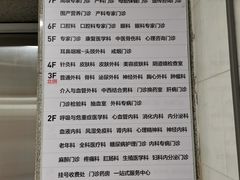 国产营养门诊
6F 口腔科 专家门诊 眼科 眼科专家门诊
5F 专家门诊 康复医学科 中医骨伤科 心理咨询门诊
耳鼻咽喉-头颈外科 戒烟门诊
4F 针灸科 皮肤科 皮肤美容科 皮肤药浴
3F 普通外科 骨科 泌尿外科 神经外科 胸心外科 肿瘤科
介入与血管外科 中西结合男科 门诊
门诊检验科 抽血室 外科专病门诊
2F 呼吸与危重症医学科 心血管内科 消化内科 内分泌科
血液内科 风湿免疫科 肾内科 心理精神科 神经内科
老年科 全科医疗科 糖尿病护理门诊 内科专病门诊
麻醉门诊 疼痛科 妇科 生殖医学科 妇科内分泌门诊
挂号收费处 门诊药房 一站式服务中心